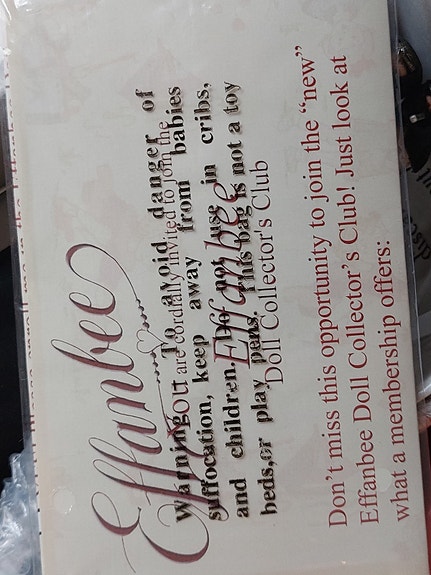 Effanbee
You are cordially invited to join the
Effanbee
Doll Collector's Club
Don't miss this opportunity to join the “new”
Effanbee Doll Collector's Club! Just look at
what a membership offers:
Warning: To avoid danger of
suffocation, keep away from babies
and children. Do not use in cribs,
beds,or play pens. This bag is not a toy